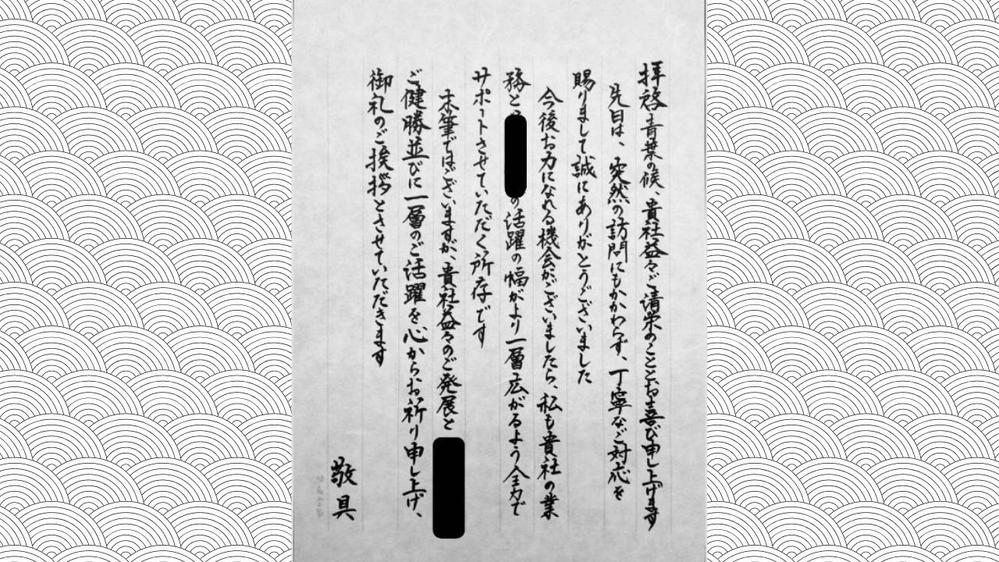 拝啓 青葉の候、貴社益々ご清栄のこととお喜び申し上げます
先日は、突然の訪問にもかかわらず、丁寧なご対応を
賜りまして誠にありがとうございました
今後お力になれる機会がございましたら、私も貴社の業
務と の活躍の幅がより一層広がるよう全力で
サポートさせていただく所存です
末筆ではございますが、貴社益々のご発展と
ご健勝並びに一層のご活躍を心からお祈り申し上げ、
御礼のご挨拶とさせていただきます
敬具